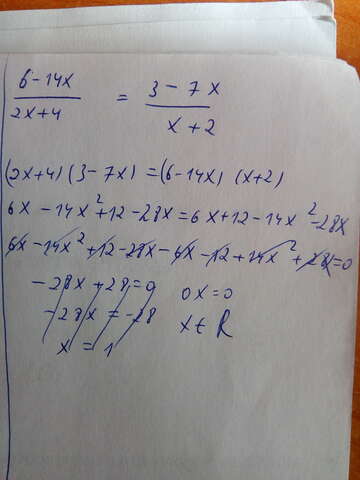 6-14x / 2x+4 = 3-7x / x+2
(2x+4)(3-7x)=(6-14x)(x+2)
6x-14x²+12-28x=6x+12-14x²-28x
6x-14x²+12-28x-6x-12+14x²+28x=0
-28x+28=0 0x=0
-28x=-28 x∈R
x=1